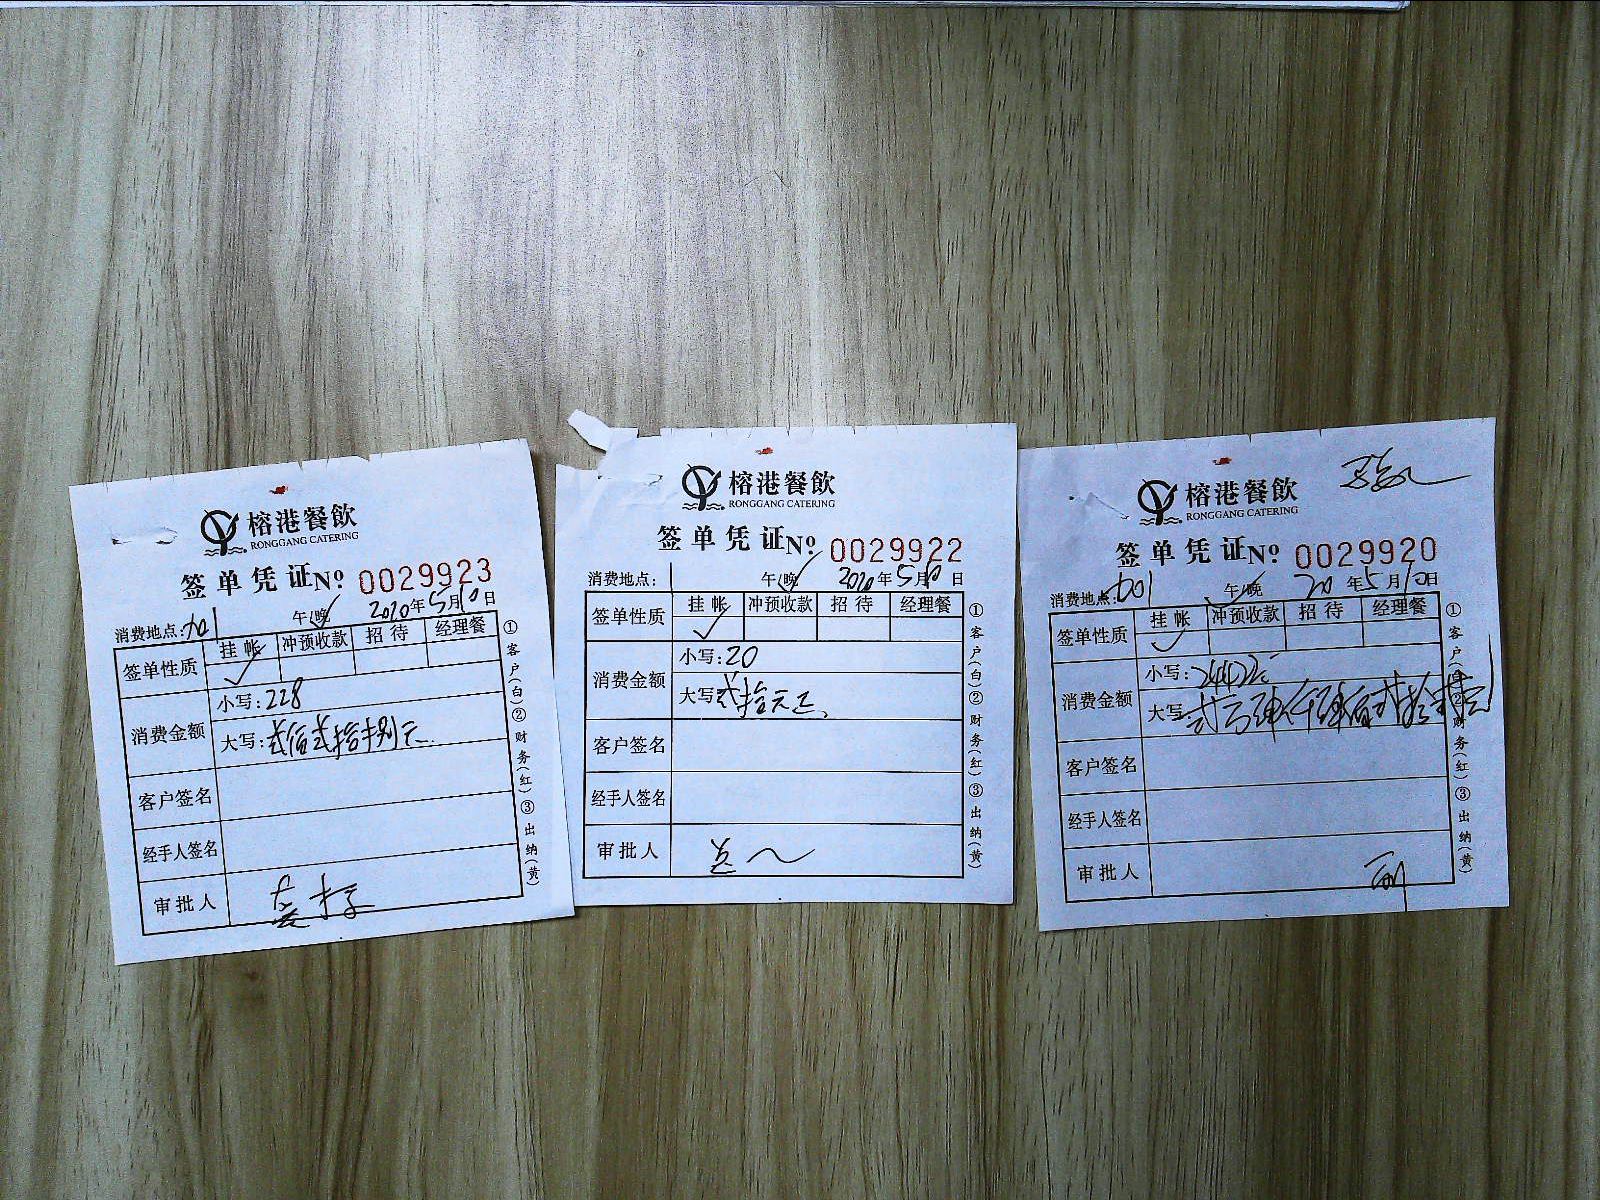 榕港餐飲
RONGGANG CATERING
签单凭证 No 0029923
消费地点: 午/晚 2020年5月10日
签单性质
挂帐 冲预收款 招待 经理餐
消费金额
小写:228
大写:贰佰贰拾捌元
客户签名
经手人签名
审批人
①客户(白)②财务(红)③出纳(黄)
榕港餐飲
RONGGANG CATERING
签单凭证 No 0029922
消费地点: 午/晚 2020年5月10日
签单性质
挂帐 冲预收款 招待 经理餐
消费金额
小写:20
大写 贰拾元正
客户签名
经手人签名
审批人
①客户(白)②财务(红)③出纳(黄)
榕港餐飲
RONGGANG CATERING
签单凭证 No 0029920
消费地点: 午/晚 20年5月10日
签单性质
挂帐 冲预收款 招待 经理餐
消费金额
小写:
大写
客户签名
经手人签名
审批人
①客户(白)②财务(红)③出纳(黄)